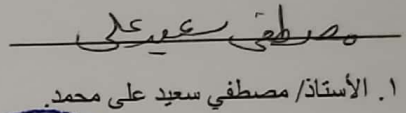 مصطفى سعيد على
١. الأستاذ/ مصطفي سعيد على محمد.